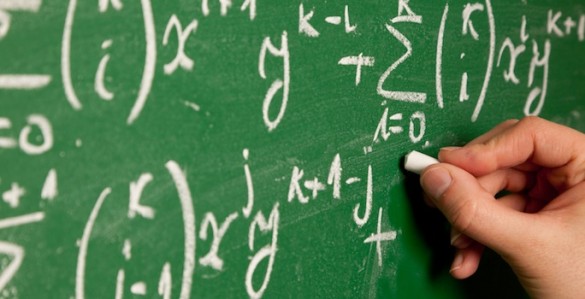 ∑ i=0 (K i) x^i+1 y^K-i + ∑ i=0 K (K i) x^i y^K+1
+1 ∑ (K i-1) x^j y^K+1-j +